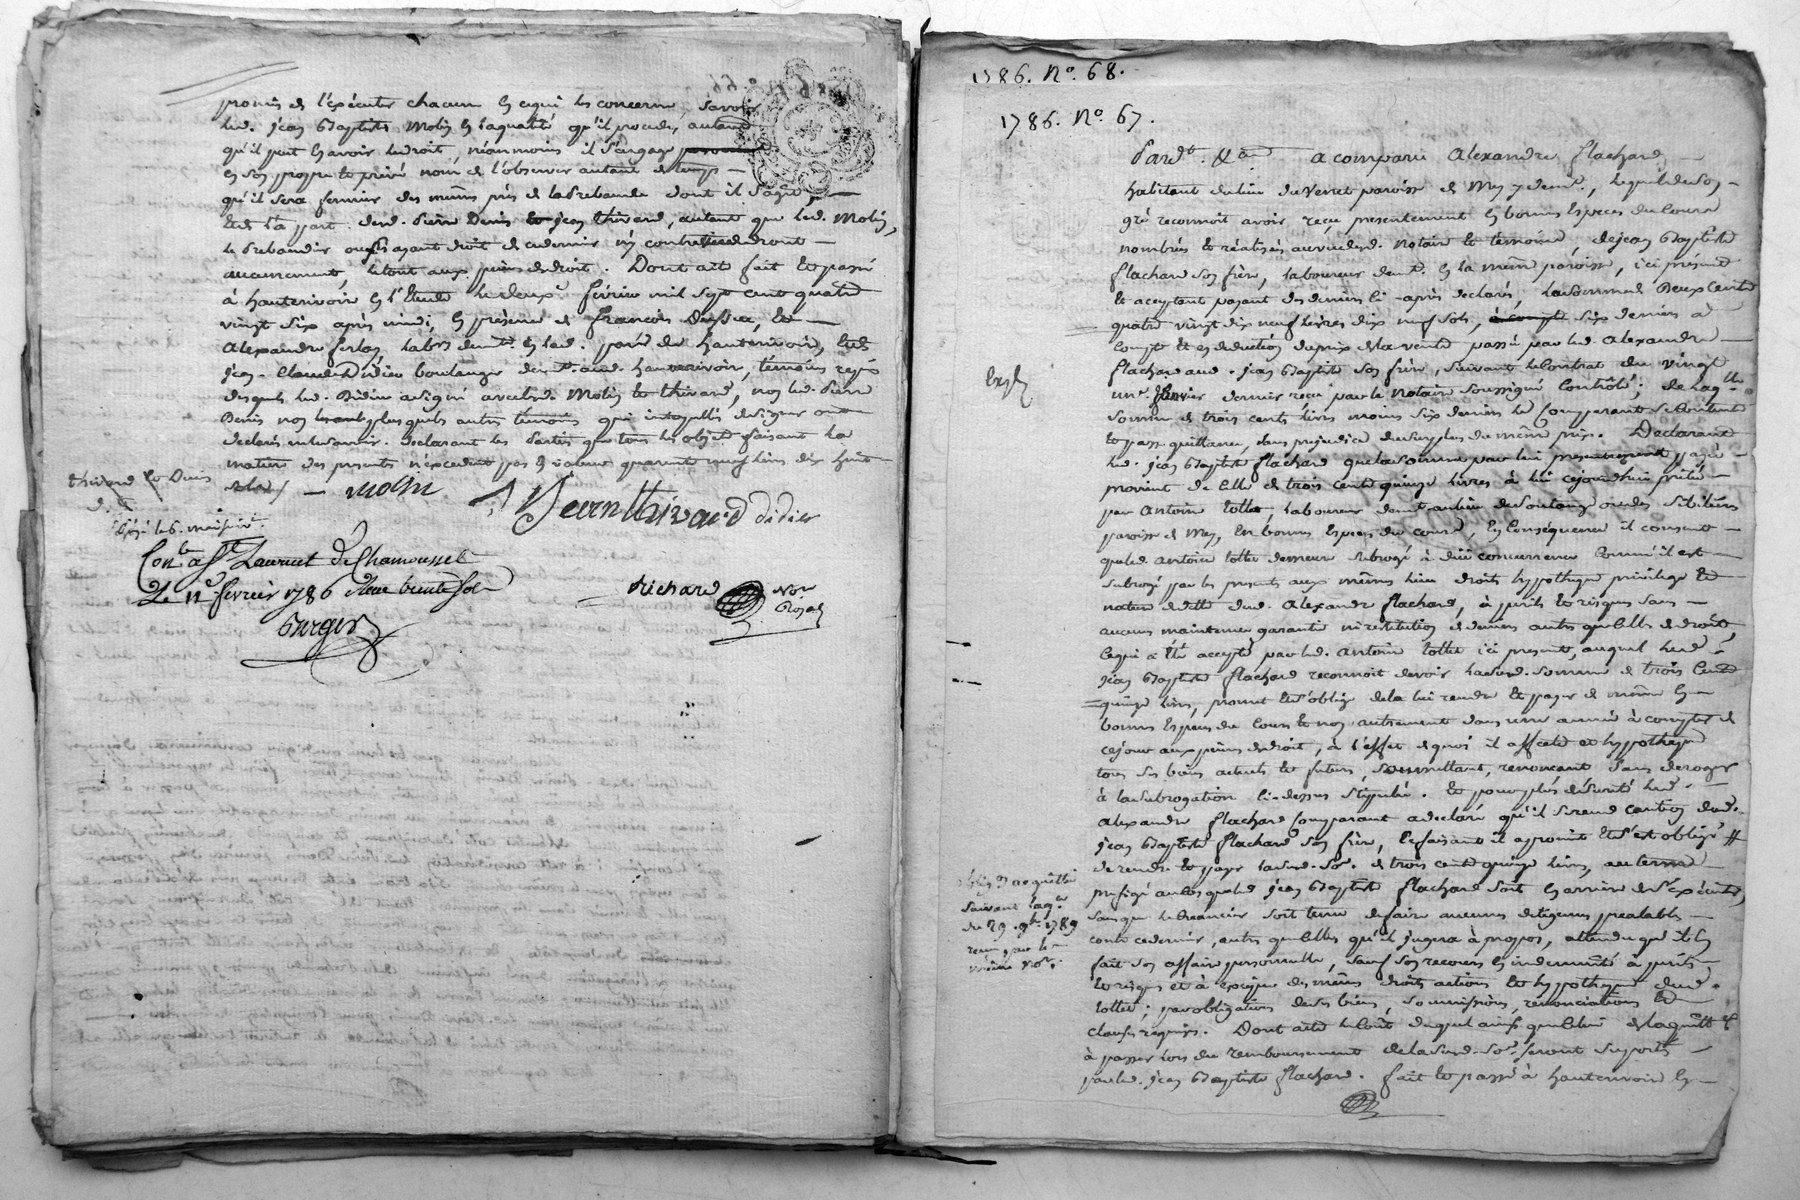 promis de l'exécuter chacun en ce qui les concerne, savoir
led. jean Baptiste Molin en la qualité qu'il procede, autant
qu'il peut en avoir le droit, néanmoins il s'engage
en son propre et privé nom de l'observer autant de temps
qu'il sera fermier des mêmes prés de la Prebande dont il s'agit,
et de la part desd. pierre Denis et jean thivard, autant que led. Molin,
le Prebandier ou ayant droit de ce dernier n'y contreviendront
aucunement, le tout aux peines de droit. Dont acte fait et passé
à hauterivoir en l'Etude le deux fevrier mil sept cent quatre
vingt six après midi, en présence de francois , et
Alexandre ferlay labrs demt. en lad. parsse de hauterivoir, et de
jean-Claude Didier boulanger demt. aud. hauterivoir, témoins reqs
desquels led. Didier a signé avec led. Molin et thivard, non led. pierre
Denis non plus que les autres témoins qui interpellés de signer ont
declaré ne le savoir. declarant les Parties que tous les objets faisant la
matiere des presents n'excedent pas en valeur quarante neuf livres dix huit
sols
thivard et Denis
molin
Jean Thivard didier
Con.le à St. Laurent De Chamousset
Le 11 fevrier 1786 Recu trente sols
Berger
Richard Nore
Royal
1786. No. 68.
1786. No. 67.
Pardt. &a a comparu Alexandre flachard
habitant du lieu du Verret paroisse de Mey y demt., lequel de son
gré reconnoit avoir reçu presentement en bonnes Especes du cours
nombrées et réalisées au vu desd. notaire et temoins, de jean Baptiste
flachard son frère, laboureur demt. en la même paroisse, ici présent
et acceptant payant des deniers ci-après declarés, la somme de Deux Cents
quatre vingt dix neuf livres dix neuf sols, six deniers à
compte et en deduction du prix de la vente passée par led. Alexandre
flachard aud. jean Baptiste son frère, suivant le Contrat du vingt
un. Janvier dernier reçu par le notaire soussigné Contrôlé; de laqlle
somme de trois cents livres moins six deniers led. Comparant se Contente
et passe quittance, sans prejudice du surplus du même prix. Declarant
led. jean Baptiste flachard que la somme par lui presentement payée
provient de Celle de trois cents quinze livres à lui cejourd'hui pretée
par Antoine tollet, laboureur demt. au lieu de Soulang ou des Sibiliers
paroisse de Mey, en bonnes Especes du cours, en Consequence il consent
que led. Antoine tollet demeure subrogé à dûe concurrence Comme il est
subrogé par les presents aux mêmes lieu droits hypotheque privilege et
nature de dette dud. Alexandre flachard, à perils et risques sans
aucune maintenue garantie ni restitution de deniers autres que Celle de droit,
Ce qui a Eté accepté par led. Antoine tollet ici present, auquel led.
jean Baptiste flachard reconnoit devoir lad. somme de trois Cents
quinze livres, promet et s'oblige de la lui rendre et payer de même en
bonnes Especes du Cours et non autrement dans une année à compter de
ce jour aux peines de droit, à l'effet de quoi il affecte et hypotheque
tous ses biens actuels et futurs, soumettant, renonçant sans deroger
à la subrogation ci-dessus stipulée. Et pour plus de sureté led.
Alexandre flachard Comparant a declaré qu'il se rend caution dud.
jean Baptiste flachard son frère, Ce faisant il a promis et s'est obligé
de rendre et payer lad. so.e de trois cents quinze livres, au terme
prefigé au cas que led. jean Baptiste flachard soit en arriere de s'executer,
sans que le Creancier soit tenu de faire aucunes diligences prealables
contre ce dernier, autres que Celles qu'il jugera à propos, attendu qu'il en
fait son affaire personnelle, sauf son recours en indemnité à perils
et risques et à exciper des mêmes droits actions et hypotheque dud.
tollet; par obligation de ses biens, soumissions, renonciations et
clauses requises. Dont acte le Cout duquel ainsi que Celui de la quitt.ce
à passer lors du remboursement de lad. so.e seront suportés
par led. jean Baptiste flachard. fait et passé à hauterivoir en
Expén
suivant laqu
du 29. 9bre 1789
recue par le
même Nore.